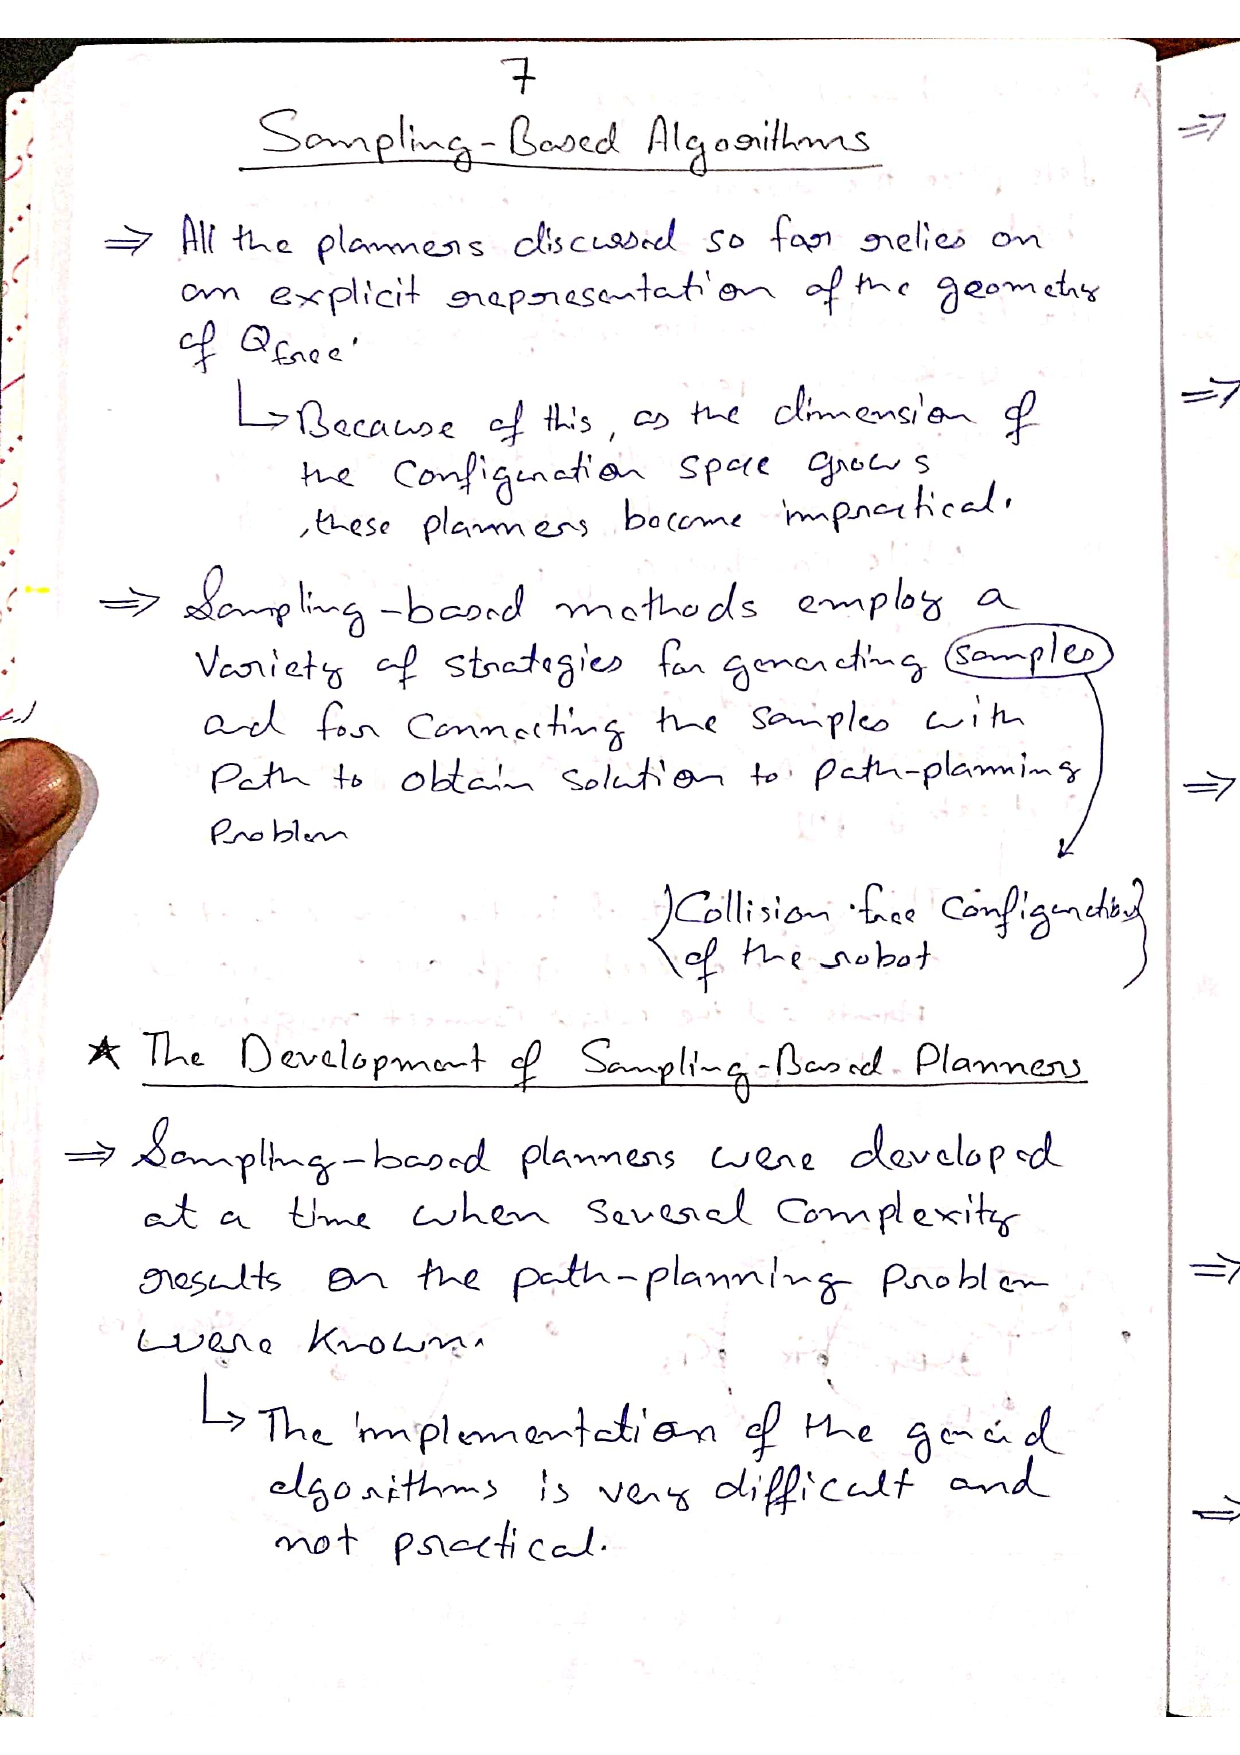 7
Sampling-Based Algorithms
⇒ All the planners discussed so far relies on
an explicit representation of the geometry
of Qfree.
↳ Because of this, as the dimension of
the Configuration space grows
, these planners become impractical.
⇒ Sampling-based methods employ a
Variety of strategies for generating samples
and for Connecting the samples with
Path to obtain solution to path-planning
Problem
{Collision free Configurations
of the robot}
★ The Development of Sampling-Based Planners
⇒ Sampling-based planners were developed
at a time when several Complexity
results on the path-planning Problem
were known.
↳ The implementation of the
algorithms is very difficult and
not practical.
⇒
⇒
⇒
⇒
⇒